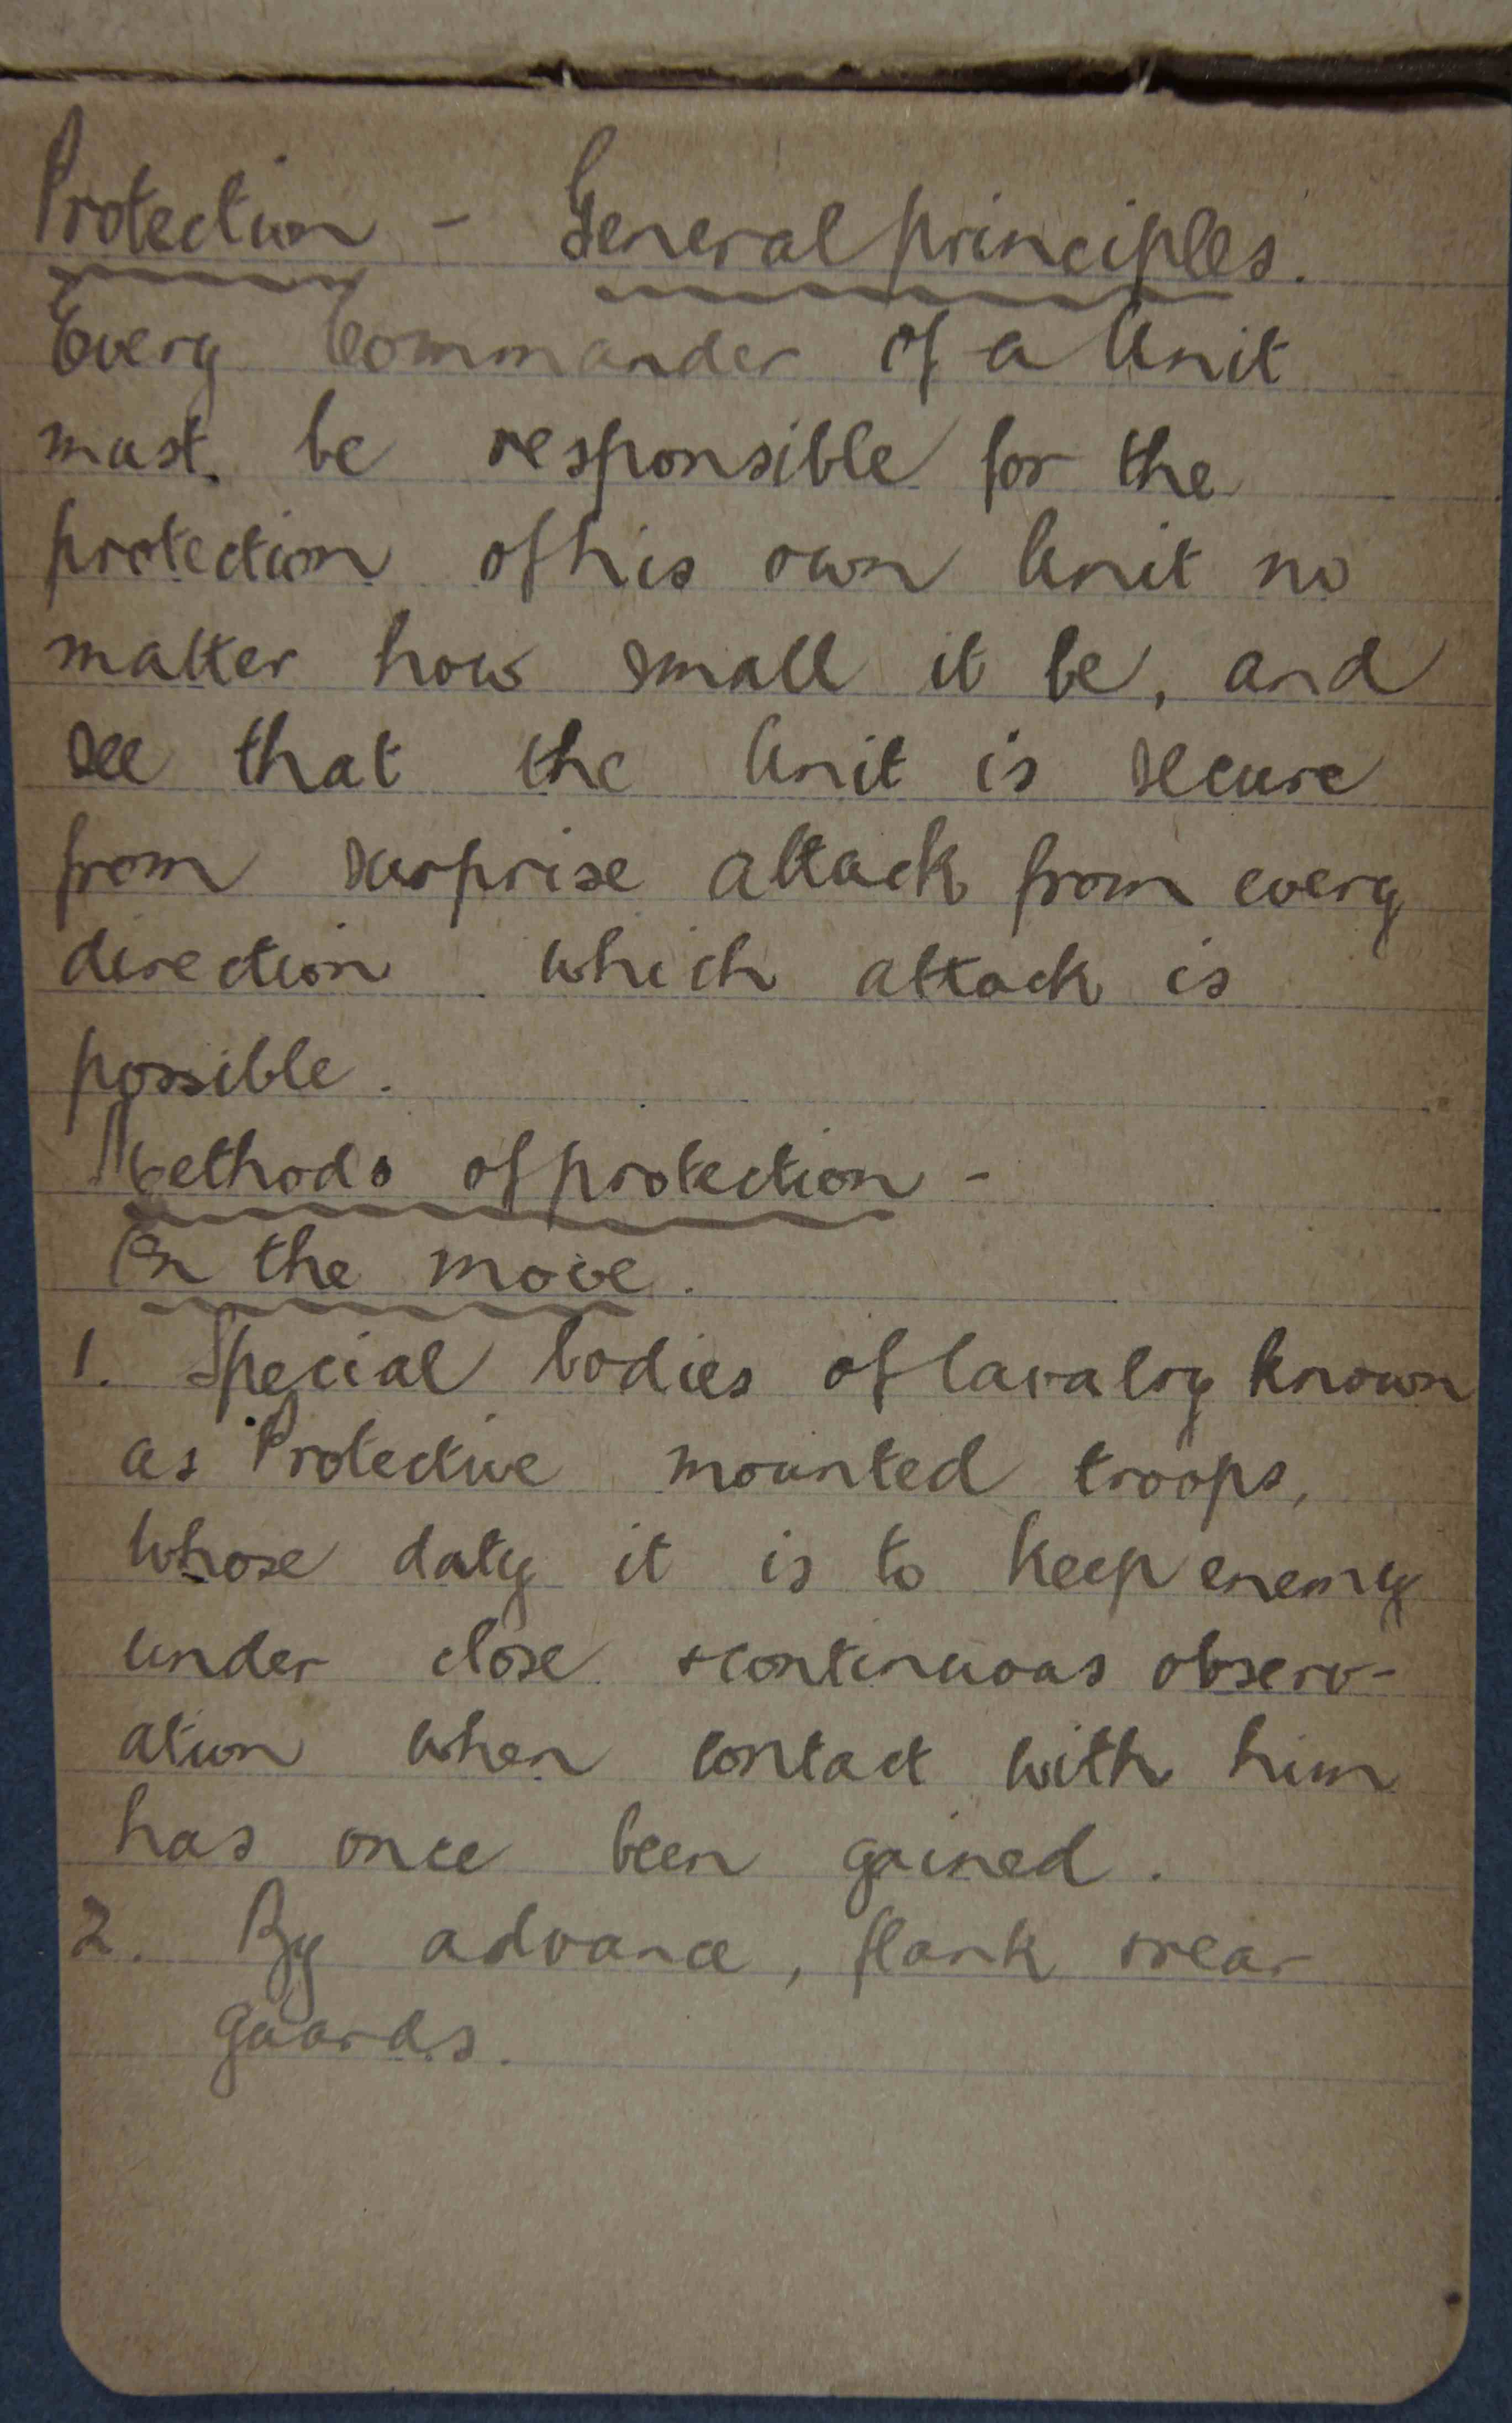 Protection - General principles.
Every Commander of a Unit
must be responsible for the
protection of his own Unit no
matter how small it be, and
see that the Unit is secure
from surprise attack from every
direction which attack is
possible.
Methods of protection -
On the move.
1. Special bodies of Cavalry known
as Protective mounted troops,
whose duty it is to keep enemy
under close & continuous observ-
ation when contact with him
has once been gained.
2. By advance, flank & rear
guards.